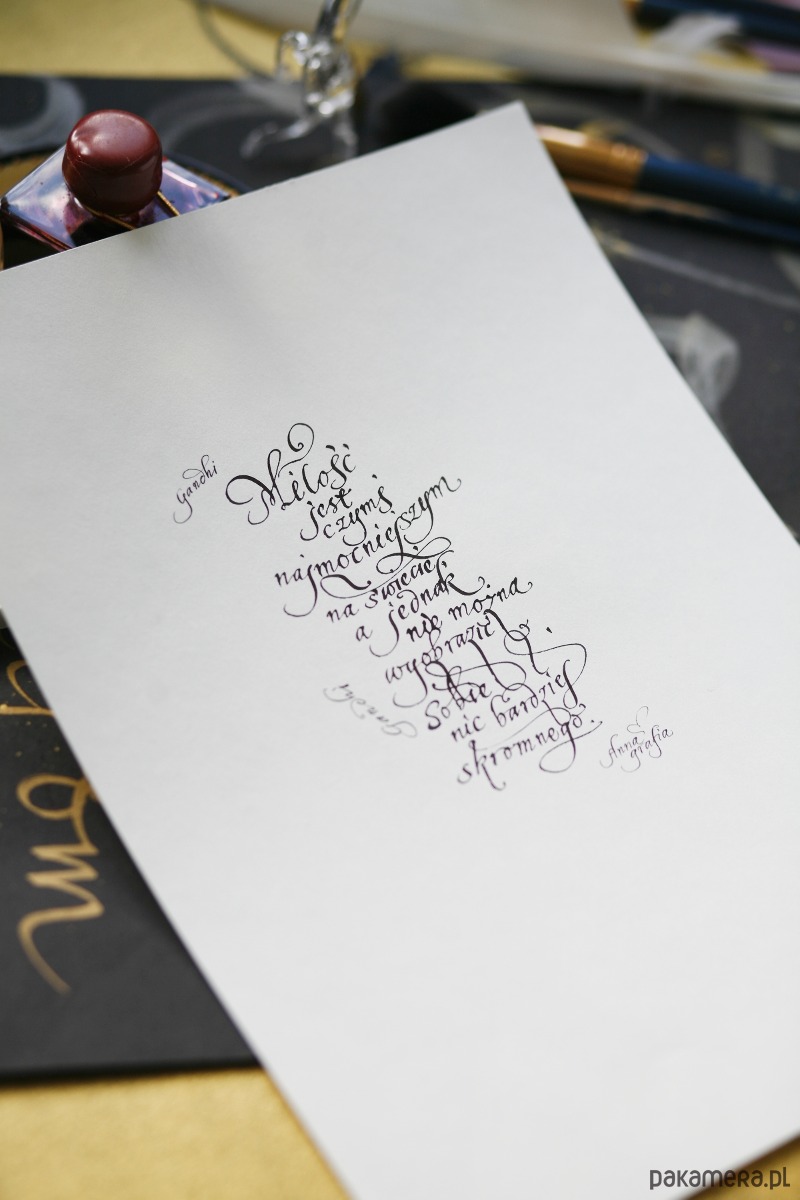 Gandhi
Miłość
jest
czymś
najmocniejszym
na świecie,
a jednak
nie można
wyobrazić
sobie
nic bardziej
skromnego.
Gandhi
Anna
grafia
om
pakamera.pl